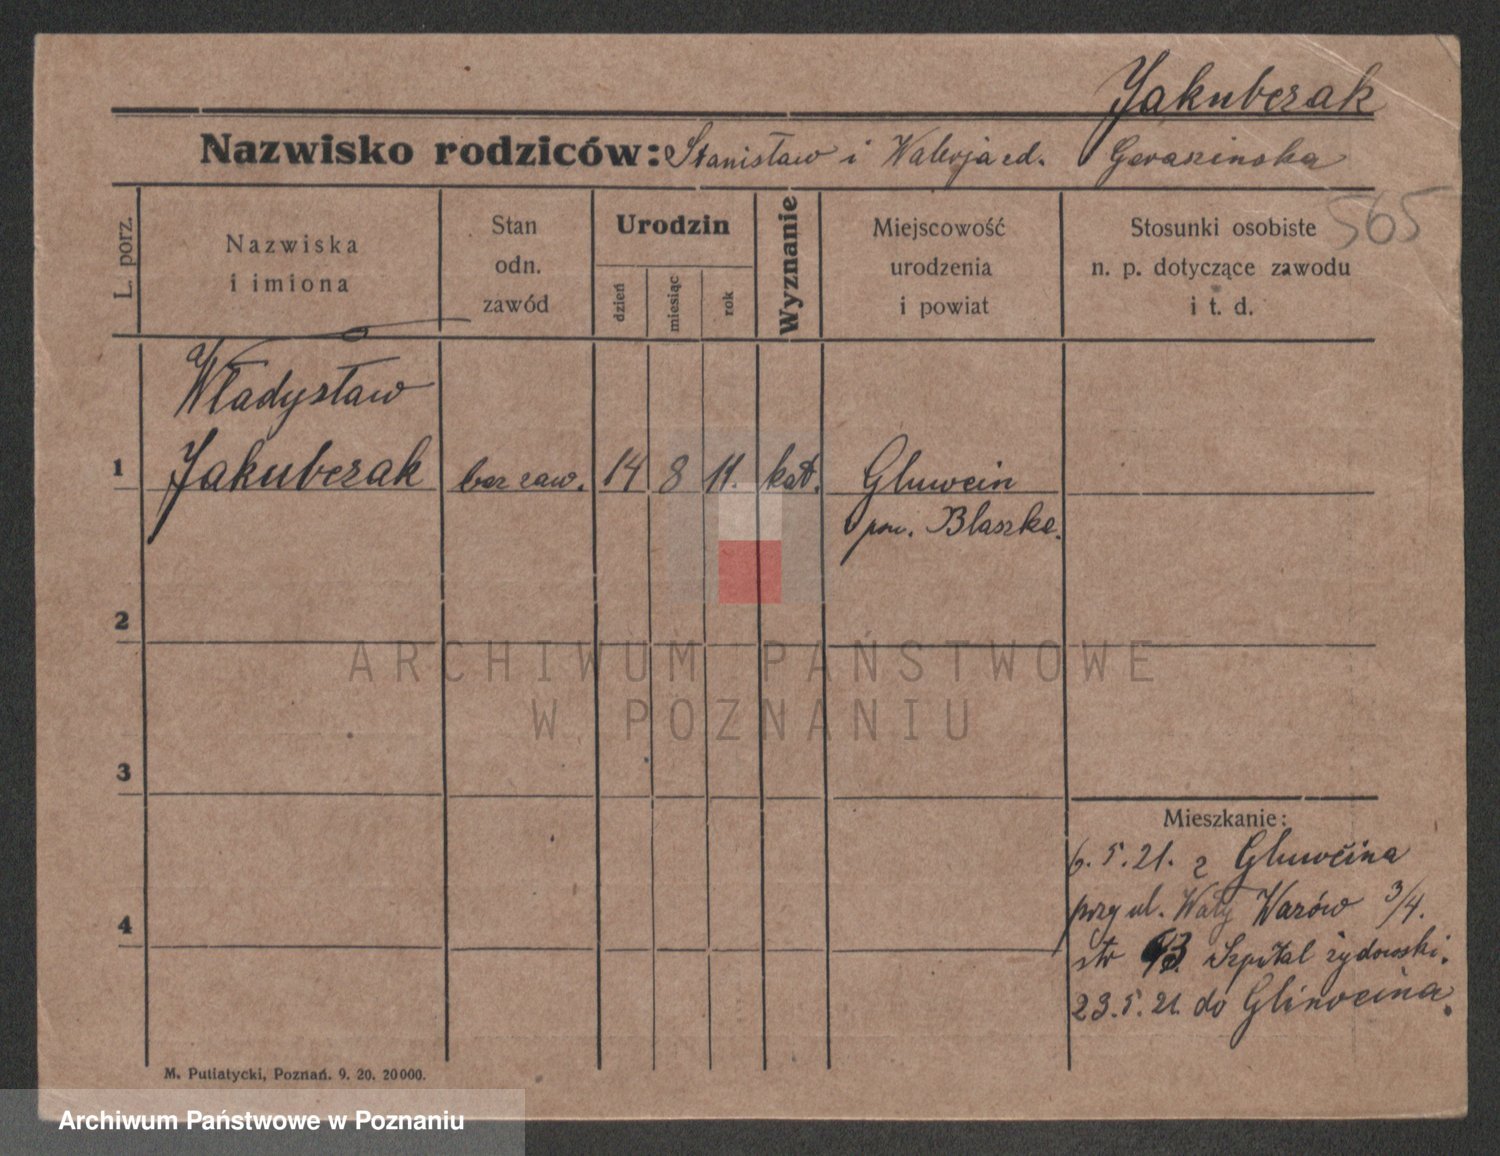 Jakubczak
Nazwisko rodziców: Stanisław i Walerja ed. Goraszinska
565
L. porz.
Nazwiska
i imiona
Stan
odn.
zawód
Urodzin
dzień
miesiąc
rok
Wyznanie
Miejscowość
urodzenia
i powiat
Stosunki osobiste
n. p. dotyczące zawodu
i t. d.
Władysław
1 Jakubczak bez zaw. 14 8 11. kat. Gluwcin
pow. Blaszke.
2
3
4
Mieszkanie:
6. 5. 21. z Gluwcina
przy ul. Wały Wazów 3/4.
str Szpital żydowski.
23. 5. 21. do Glinocina.
M. Putiatycki, Poznań. 9. 20. 20000.
ARCHIWUM PAŃSTWOWE
W POZNANIU
Archiwum Państwowe w Poznaniu